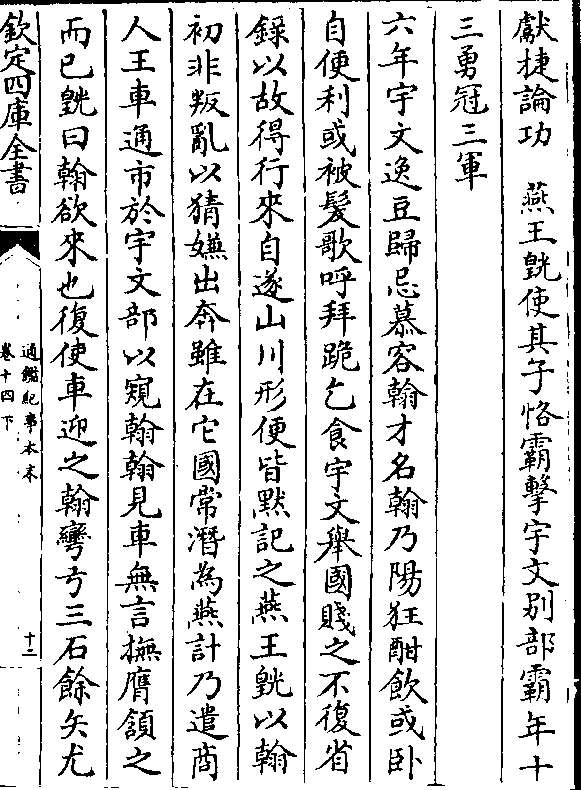 獻捷論功　燕王皝使其子恪霸擊宇文别部霸年十
三勇冠三軍
六年宇文逸豆歸忌慕容翰才名翰乃陽狂酣飲或卧
自便利或被髮歌呼拜跪乞食宇文舉國賤之不復省
錄以故得行來自遂山川形便皆默記之燕王皝以翰
初非叛亂以猜嫌出奔雖在它國常潛為燕計乃遣商
人王車通市於宇文部以窺翰翰見車無言撫膺頷之
而已皝曰翰欲來也復使車迎之翰彎弓三石餘矢尤
欽定四庫全書
通鑑紀事本末
卷十四下
十二